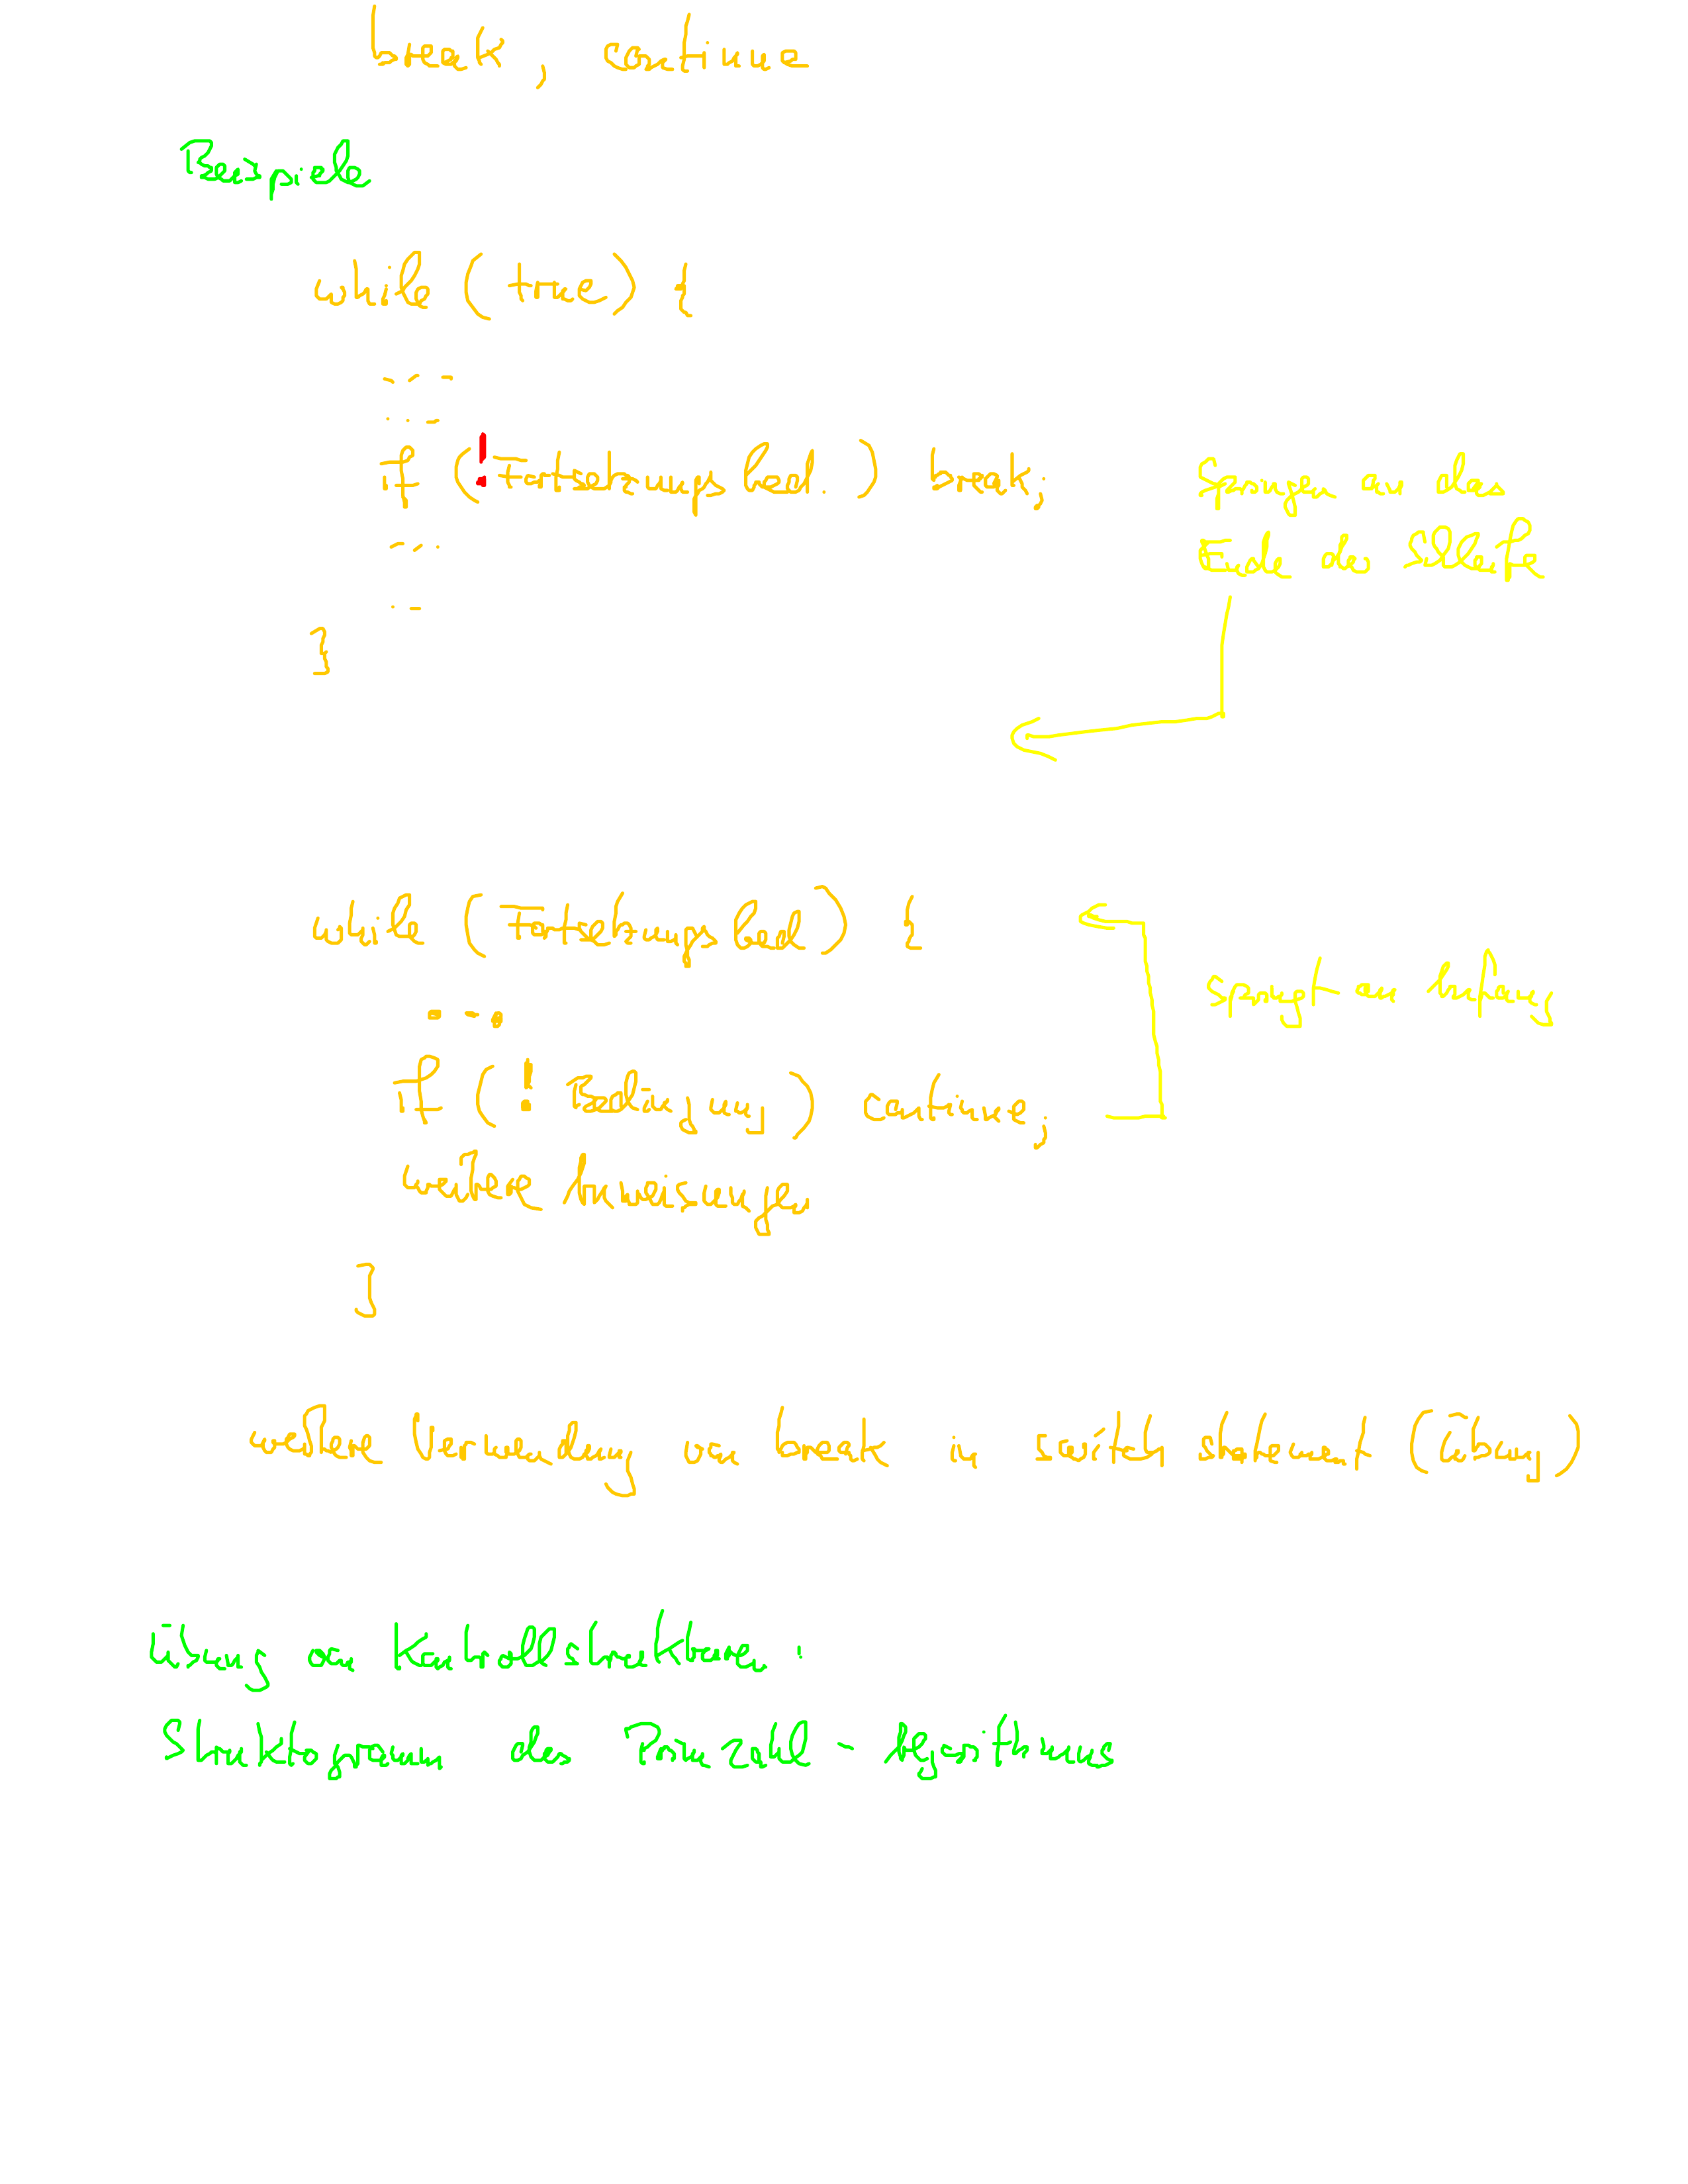 break, continue
Beispiele
while (true) {
- - -
. . -
if (!Fortsetzungsbed.) break;
Springen an das
Ende der Schleife
- - .
. -
}
while (Fortsetzungsbed) {
. - .
Springt an Anfang
if (! Bedingung) continue;
weitere Anweisungen
}
weitere Verwendung von break in switch statement (Übung)
Übung an Kontrollstrukturen:
Struktogramm des Primzahl-Algorithmus